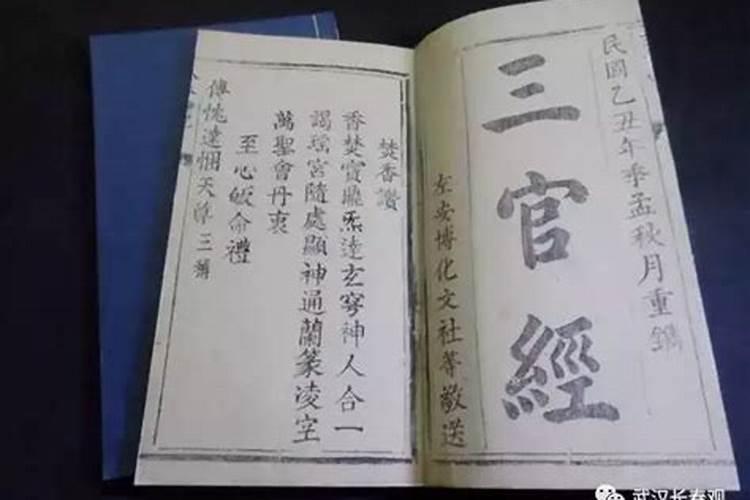 民國乙丑年季孟秋月重鐫
三官經
左安博化文社等敬送
焚香讚
香焚寳鼎炁達玄穹神人合一
謁瑶宮隨處顯神通蘭篆凌空
萬聖會丹衷
至心皈命禮
傳忱達悃天尊三稱
武汉长春观